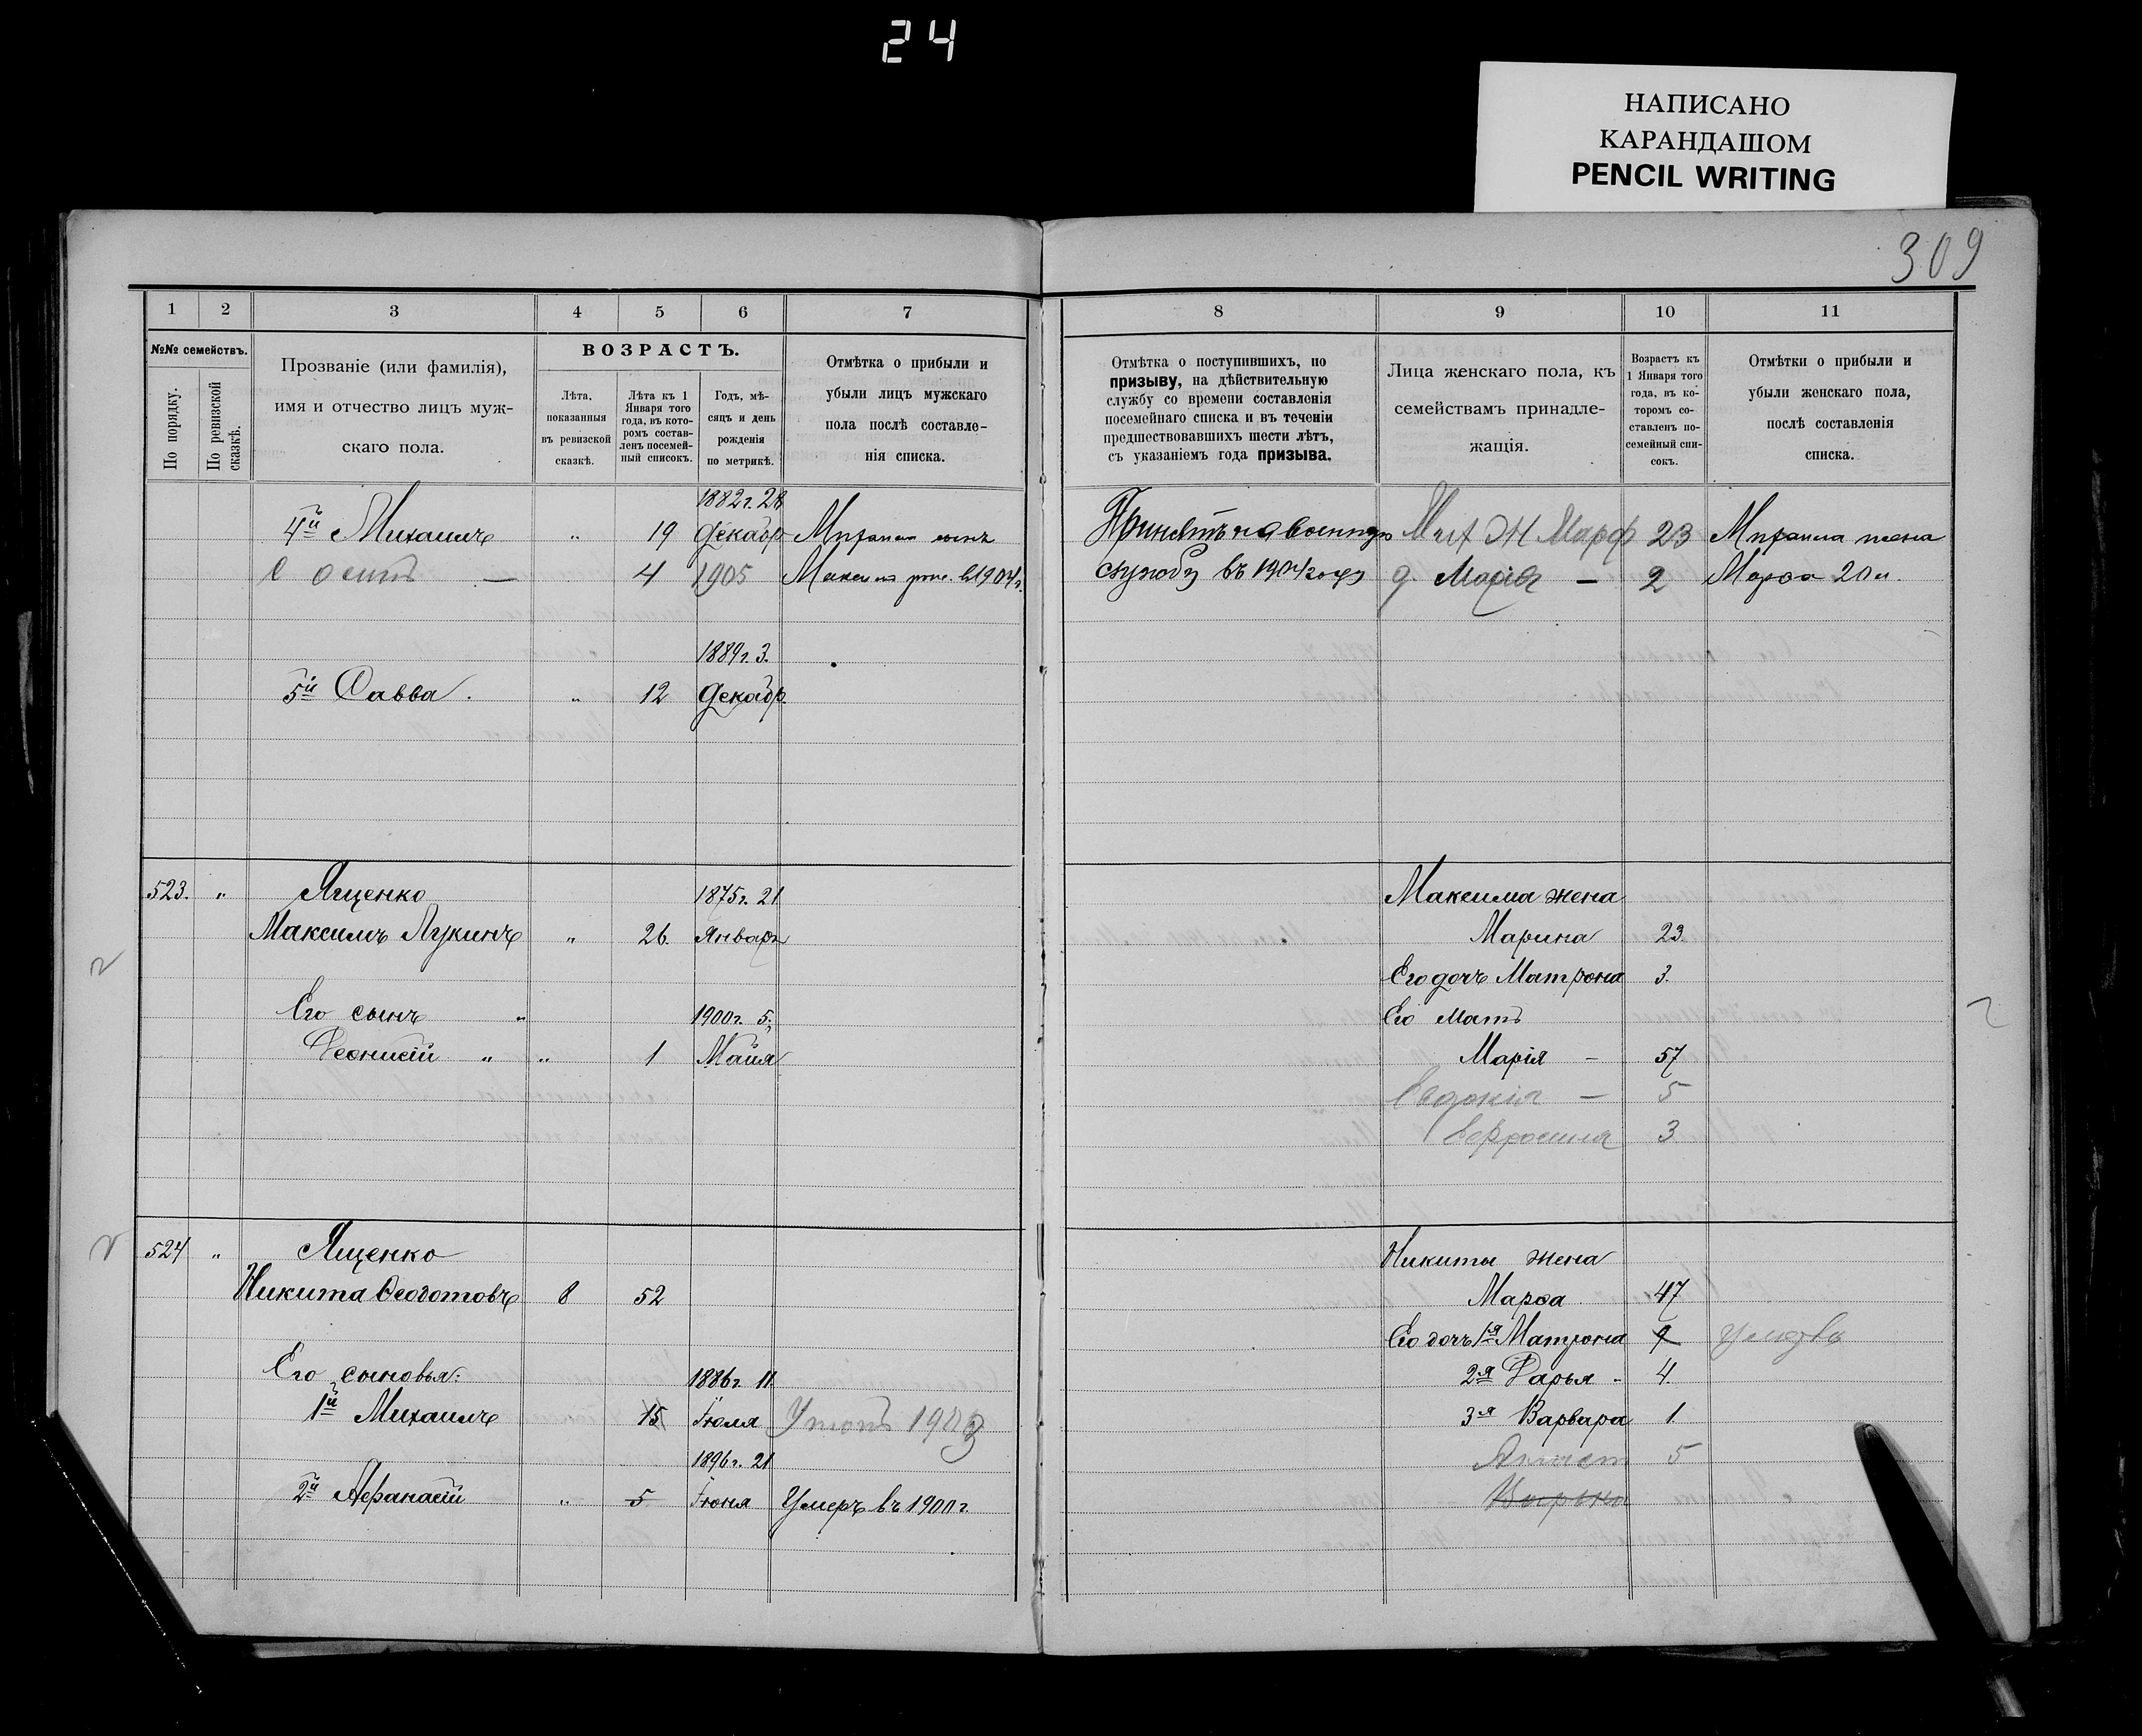 24
НАПИСАНО
КАРАНДАШОМ
PENCIL WRITING
309
1 2 3 4 5 6 7
№№ семействъ.
По порядку.
По ревизской сказкѣ.
Прозваніе (или фамилія),
имя и отчество лицъ муж-
скаго пола.
ВОЗРАСТЪ.
Лѣта,
показанныя
въ ревизской
сказкѣ.
Лѣта къ 1
Января того
года, въ кото-
ромъ состав-
ленъ посемей-
ный списокъ.
Годъ, мѣ-
сяцъ и день
рожденія
по метрикѣ.
Отмѣтка о прибыли и
убыли лицъ мужскаго
пола послѣ составле-
нія списка.
1882г. 28
4й Михаилъ " 19 Декабр Михаила сынъ
с Осипъ — 4 1905 1904г.
1889г. 3.
5й Савва. " 12 Декабр.
523. " Ященко 1875г. 21
Максимъ Лукинъ " 26. Январь
Его сынъ " 1900г. 5.
Деонисій " " 1 Мая
524 " Ященко
Никита Ѳеодотовъ 8 52
Его сыновья: 1886г. 11
1й Михаилъ 15 Іюля
1896г. 21
2й Афанасій " 5 Іюня Умеръ въ 1900г.
8 9 10 11
Отмѣтка о поступившихъ, по
призыву, на дѣйствительную
службу со времени составленія
посемейнаго списка и въ теченіи
предшествовавшихъ шести лѣтъ,
съ указаніемъ года призыва.
Лица женскаго пола, къ
семействамъ принадле-
жащія.
Возрастъ къ
1 Января того
года, въ ко-
торомъ со-
ставленъ по-
семейный спи-
сокъ.
Отмѣтки о прибыли и
убыли женскаго пола,
послѣ составленія
списка.
Принятъ на военную Мих Ж Марф 23 Михаила жена
службу въ 1904 году д. Марія — 2 Марѳа 20 л.
Максима жена
Марина 23.
Его дочь Матрона 3.
Его мать
Марія - 57
Евдокія — 5
Ефросинія 3
Никиты жена
Марѳа 47
Его дочь 1я Матрона
2я Дарья - 4.
3я Варвара 1
5